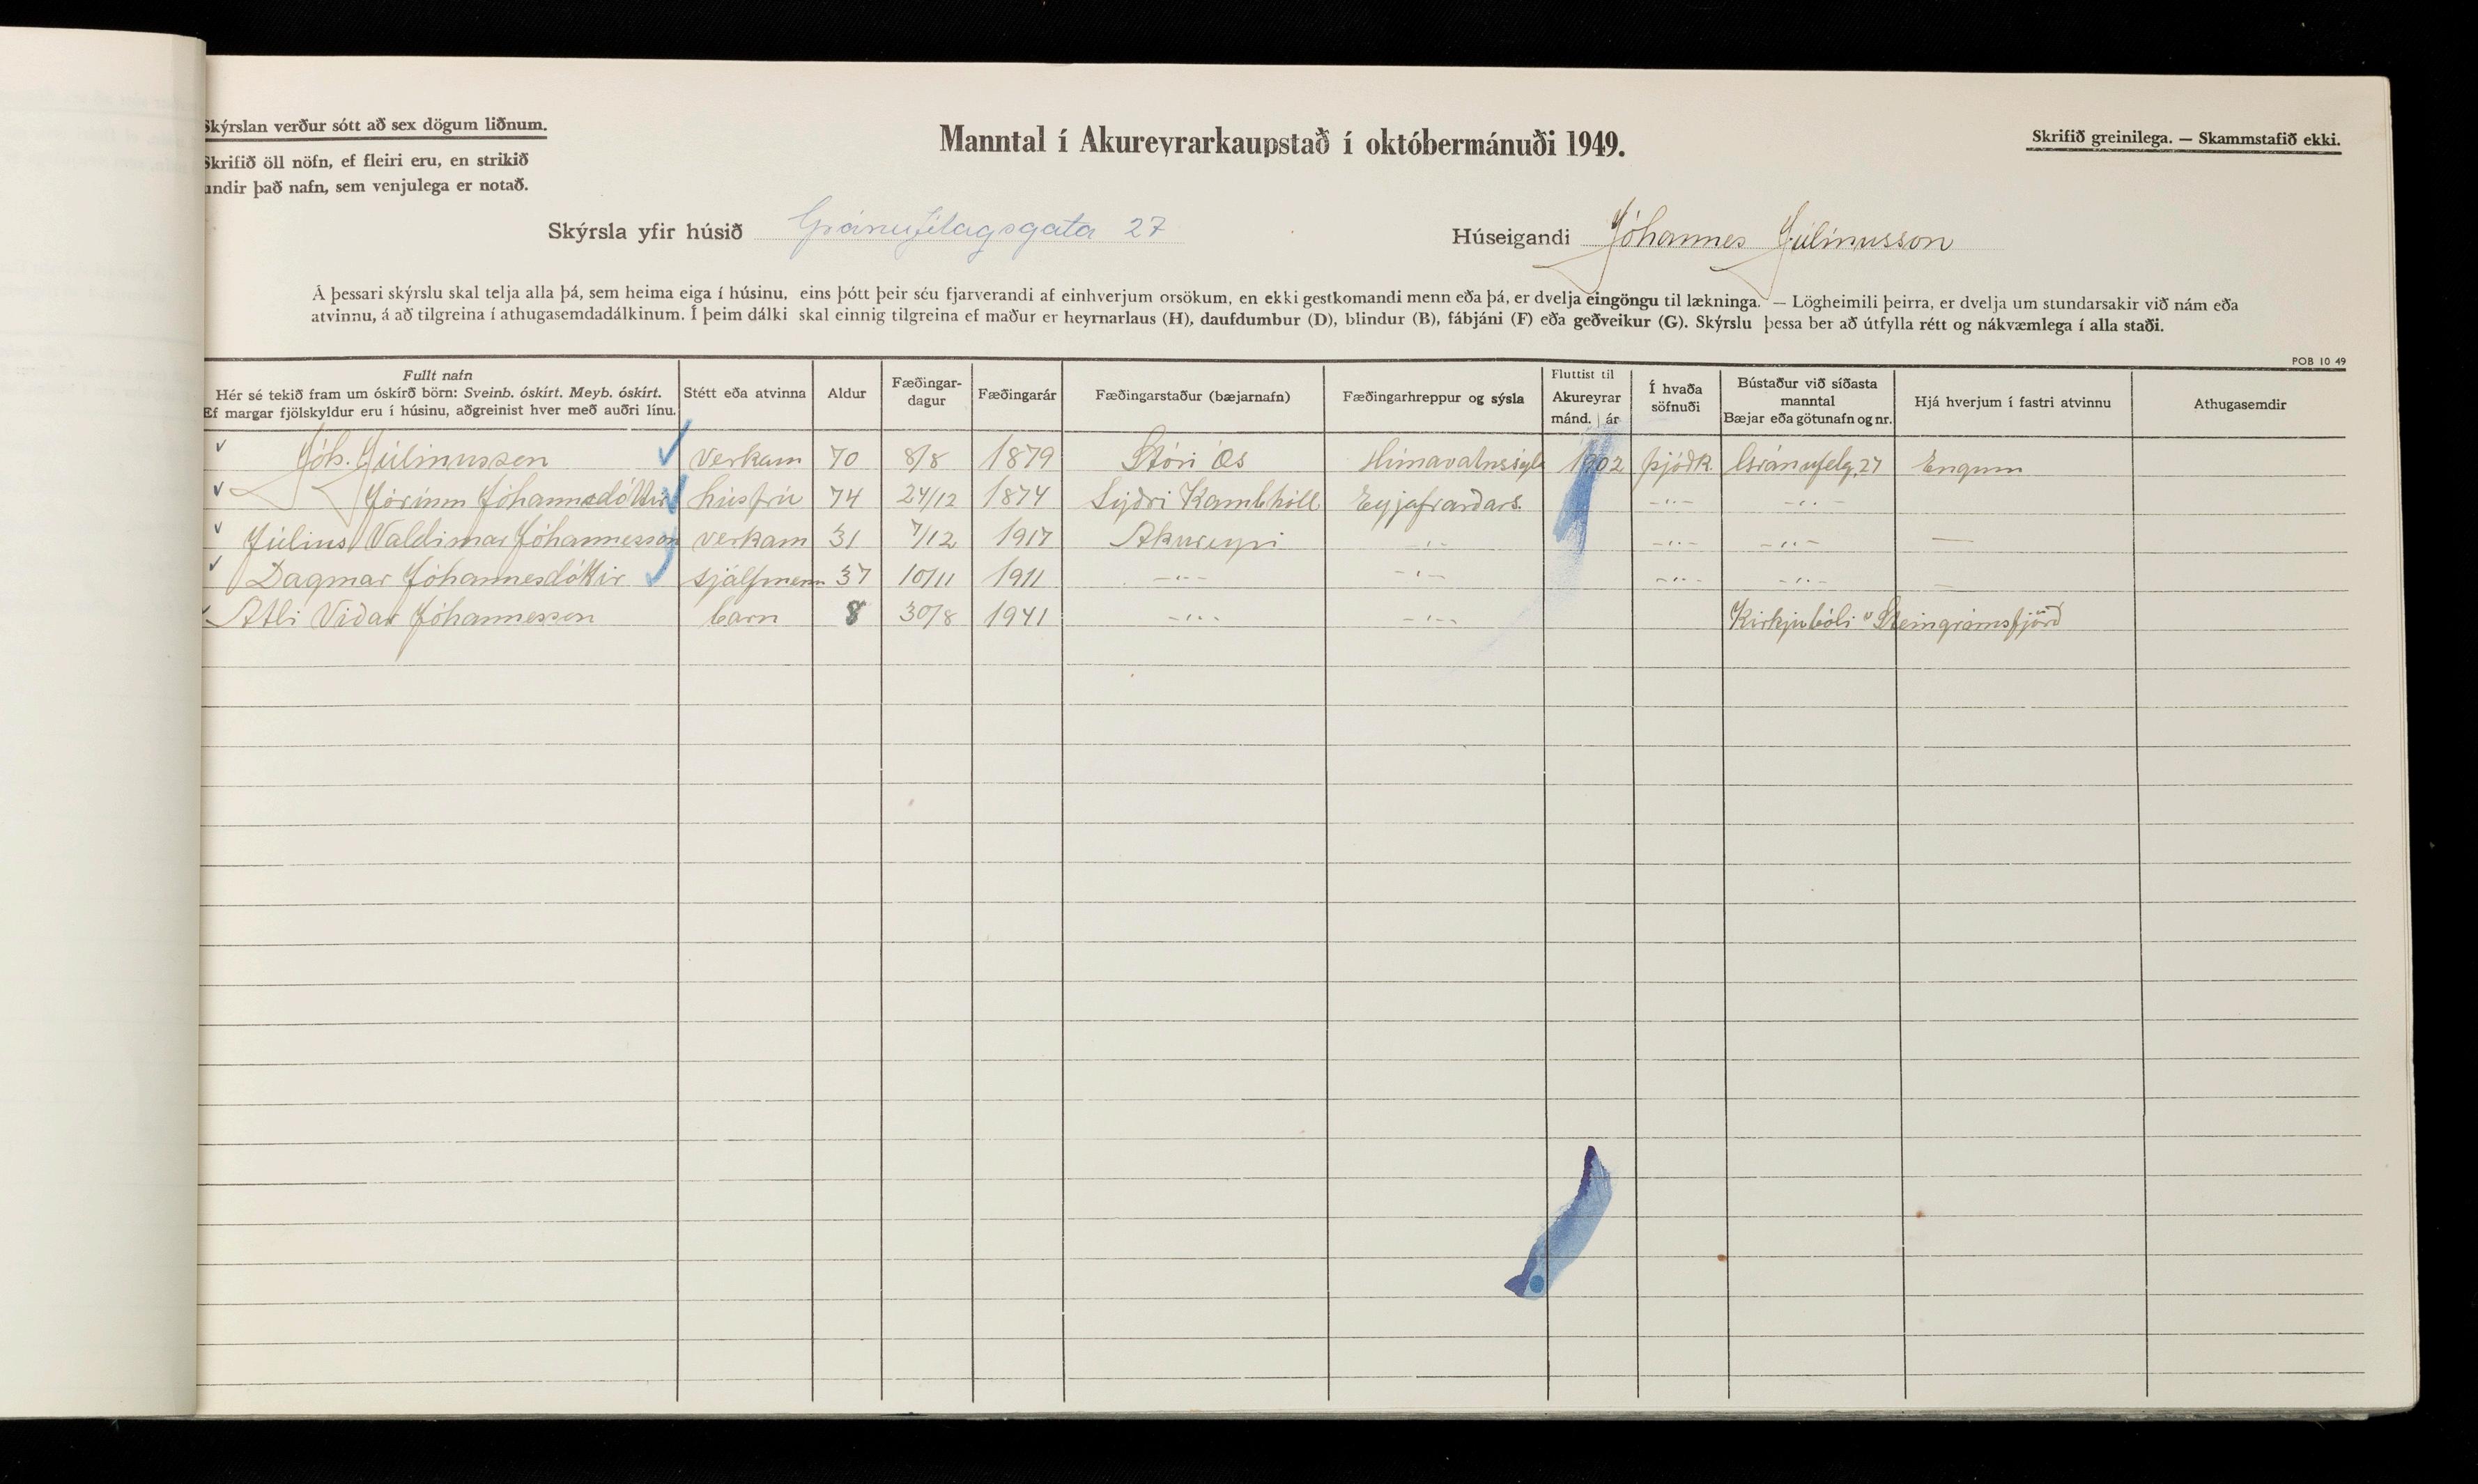 Skýrslan verður sótt að sex dögum liðnum.
Skrifið öll nöfn, ef fleiri eru, en strikið
undir það nafn, sem venjulega er notað.
Manntal í Akureyrarkaupstað í októbermánuði 1949.
Skrifið greinilega. — Skammstafið ekki.
Skýrsla yfir húsið Gránufélagsgata 27
Húseigandi Jóhannes Júlínusson
Á þessari skýrslu skal telja alla þá, sem heima eiga í húsinu, eins þótt þeir séu fjarverandi af einhverjum orsökum, en ekki gestkomandi menn eða þá, er dvelja eingöngu til lækninga. — Lögheimili þeirra, er dvelja um stundarsakir við nám eða
atvinnu, á að tilgreina í athugasemdadálkinum. Í þeim dálki skal einnig tilgreina ef maður er heyrnarlaus (H), daufdumbur (D), blindur (B), fábjáni (F) eða geðveikur (G). Skýrslu þessa ber að útfylla rétt og nákvæmlega í alla staði.
POB 10 49
Fullt nafn
Hér sé tekið fram um óskírð börn: Sveinb. óskírt. Meyb. óskírt.
Ef margar fjölskyldur eru í húsinu, aðgreinist hver með auðri línu.
Stétt eða atvinna
Aldur
Fæðingar-
dagur
Fæðingarár
Fæðingarstaður (bæjarnafn)
Fæðingarhreppur og sýsla
Fluttist til
Akureyrar
mánd. ár
Í hvaða
söfnuði
Bústaður við síðasta
manntal
Bæjar eða götunafn og nr.
Hjá hverjum í fastri atvinnu
Athugasemdir
✓ Jóh. Júlínusson ✓ verkam 70 8/8 1879 Stóri Ós Húnavatnssýsla 1902 þjóðk. Gránufélg. 27 Engum
✓ Jórunn Jóhannsdóttir ✓ húsfrú 74 24/12 1874 Syðri Kambhóll Eyjafjarðars. -"- -"-
✓ Júlíus Valdimar Jóhannesson ✓ verkam 31 7/12 1917 Akureyri -"- -"- -"- —
✓ Dagmar Jóhannesdóttir ✓ sjálfmenn 37 10/11 1911 -"- -"- -"- -"- —
✓ Atli Viðar Jóhannesson barn 8 30/8 1941 -"- -"- Kirkjubóli v Steingrímsfjörð